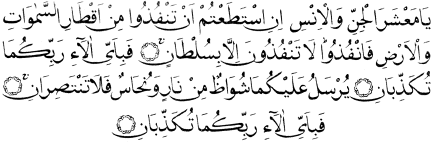 يَا مَعْشَرَ الْجِنِّ وَالْاِنْسِ اِنِ اسْتَطَعْتُمْ اَنْ تَنْفُذُوا مِنْ اَقْطَارِ السَّمٰوَاتِ
وَالْاَرْضِ فَانْفُذُوا لَا تَنْفُذُونَ اِلَّا بِسُلْطَانٍ ۝ فَبِاَيِّ اٰلَٓاءِ رَبِّكُمَا
تُكَذِّبَانِ ۝ يُرْسَلُ عَلَيْكُمَا شُوَاظٌ مِنْ نَارٍ وَنُحَاسٌ فَلَا تَنْتَصِرَانِ ۝
فَبِاَيِّ اٰلَٓاءِ رَبِّكُمَا تُكَذِّبَانِ ۝